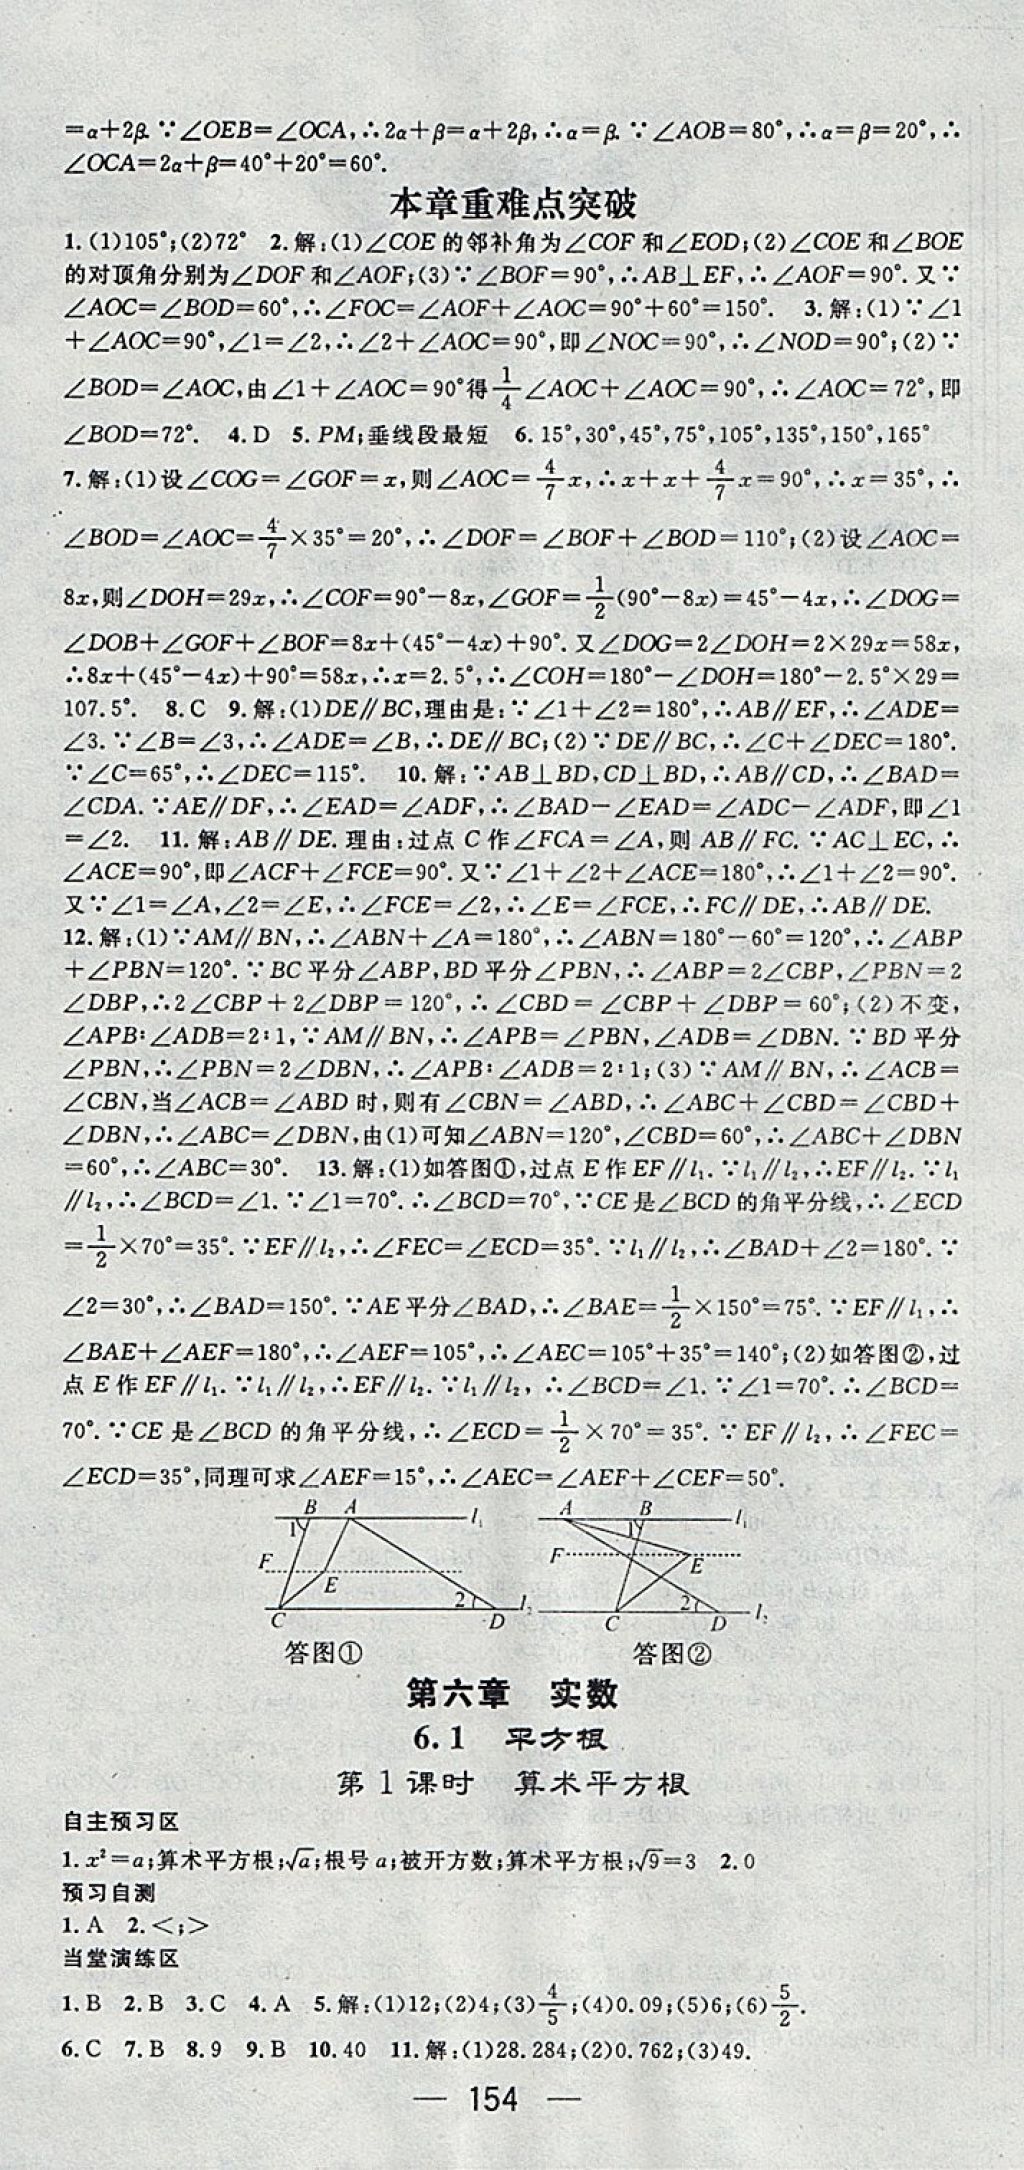 =α+2β.∵∠OEB=∠OCA,∴2α+β=α+2β,∴α=β.∵∠AOB=80°,∴α=β=20°,∴
∠OCA=2α+β=40°+20°=60°.
本章重难点突破
1.(1)105°;(2)72° 2.解:(1)∠COE的邻补角为∠COF和∠EOD;(2)∠COE和∠BOE
的对顶角分别为∠DOF和∠AOF;(3)∵∠BOF=90°,∴AB⊥EF,∴∠AOF=90°.又∵
∠AOC=∠BOD=60°,∴∠FOC=∠AOF+∠AOC=90°+60°=150°. 3.解:(1)∵∠1
+∠AOC=90°,∠1=∠2,∴∠2+∠AOC=90°,即∠NOC=90°,∴∠NOD=90°;(2)∵
∠BOD=∠AOC,由∠1+∠AOC=90°得1/4∠AOC+∠AOC=90°,∴∠AOC=72°,即
∠BOD=72°. 4.D 5.PM;垂线段最短 6.15°,30°,45°,75°,105°,135°,150°,165°
7.解:(1)设∠COG=∠GOF=x,则∠AOC=4/7x,∴x+x+4/7x=90°,∴x=35°,∴
∠BOD=∠AOC=4/7×35°=20°,∴∠DOF=∠BOF+∠BOD=110°;(2)设∠AOC=
8x,则∠DOH=29x,∴∠COF=90°-8x,∠GOF=1/2(90°-8x)=45°-4x,∴∠DOG=
∠DOB+∠GOF+∠BOF=8x+(45°-4x)+90°.又∠DOG=2∠DOH=2×29x=58x,
∴8x+(45°-4x)+90°=58x,∴x=2.5°,∴∠COH=180°-∠DOH=180°-2.5°×29=
107.5°. 8.C 9.解:(1)DE∥BC,理由是:∵∠1+∠2=180°,∴AB∥EF,∴∠ADE=
∠3.∵∠B=∠3,∴∠ADE=∠B,∴DE∥BC;(2)∵DE∥BC,∴∠C+∠DEC=180°.
∵∠C=65°,∴∠DEC=115°. 10.解:∵AB⊥BD,CD⊥BD,∴AB∥CD,∴∠BAD=
∠CDA.∵AE∥DF,∴∠EAD=∠ADF,∴∠BAD-∠EAD=∠ADC-∠ADF,即∠1
=∠2. 11.解:AB∥DE.理由:过点C作∠FCA=∠A,则AB∥FC.∵AC⊥EC,∴
∠ACE=90°,即∠ACF+∠FCE=90°.又∵∠1+∠2+∠ACE=180°,∴∠1+∠2=90°.
又∵∠1=∠A,∠2=∠E,∴∠FCE=∠2,∴∠E=∠FCE,∴FC∥DE,∴AB∥DE.
12.解:(1)∵AM∥BN,∴∠ABN+∠A=180°,∴∠ABN=180°-60°=120°,∴∠ABP
+∠PBN=120°.∵BC平分∠ABP,BD平分∠PBN,∴∠ABP=2∠CBP,∠PBN=2
∠DBP,∴2∠CBP+2∠DBP=120°,∴∠CBD=∠CBP+∠DBP=60°;(2)不变,
∠APB∶∠ADB=2∶1,∵AM∥BN,∴∠APB=∠PBN,∠ADB=∠DBN.∵BD平分
∠PBN,∴∠PBN=2∠DBN,∴∠APB∶∠ADB=2∶1;(3)∵AM∥BN,∴∠ACB=
∠CBN,当∠ACB=∠ABD时,则有∠CBN=∠ABD,∴∠ABC+∠CBD=∠CBD+
∠DBN,∴∠ABC=∠DBN,由(1)可知∠ABN=120°,∠CBD=60°,∴∠ABC+∠DBN
=60°,∴∠ABC=30°. 13.解:(1)如答图①,过点E作EF∥l₁.∵l₁∥l₂,∴EF∥l₂.∵l₁
∥l₂,∴∠BCD=∠1.∵∠1=70°.∴∠BCD=70°,∵CE是∠BCD的角平分线,∴∠ECD
=1/2×70°=35°.∵EF∥l₂,∴∠FEC=∠ECD=35°.∵l₁∥l₂,∴∠BAD+∠2=180°.∵
∠2=30°,∴∠BAD=150°.∵AE平分∠BAD,∴∠BAE=1/2×150°=75°.∵EF∥l₁,∴
∠BAE+∠AEF=180°,∴∠AEF=105°,∴∠AEC=105°+35°=140°;(2)如答图②,过
点E作EF∥l₁.∵l₁∥l₂,∴EF∥l₂.∵l₁∥l₂,∴∠BCD=∠1.∵∠1=70°.∴∠BCD=
70°.∵CE是∠BCD的角平分线,∴∠ECD=1/2×70°=35°.∵EF∥l₂,∴∠FEC=
∠ECD=35°,同理可求∠AEF=15°,∴∠AEC=∠AEF+∠CEF=50°.
B A l₁ 1 F E C 2 D l₂
A B l₁ 1 F E C 2 D l₂
答图① 答图②
第六章 实数
6.1 平方根
第1课时 算术平方根
自主预习区
1.x²=a;算术平方根;√a;根号a;被开方数;算术平方根;√9=3 2.0
预习自测
1.A 2.<;>
当堂演练区
1.B 2.B 3.C 4.A 5.解:(1)12;(2)4;(3)4/5;(4)0.09;(5)6;(6)5/2.
6.C 7.B 8.9 9.B 10.40 11.解:(1)28.284;(2)0.762;(3)49.
— 154 —